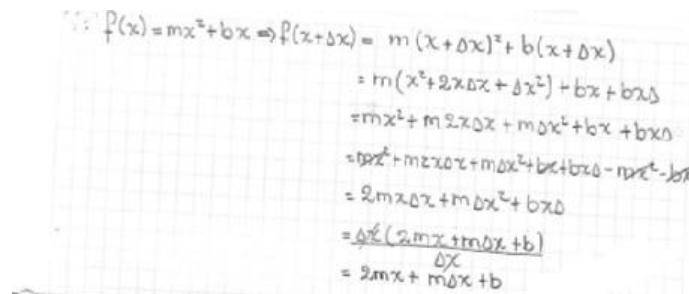 ∵ f(x) = mx² + bx ⇒ f(x+Δx) = m(x+Δx)² + b(x+Δx)
= m(x²+2xΔx + Δx²) + bx + bxΔ
= mx² + m2xΔx + mΔx² + bx + bxΔ
= mx² + m2xΔx + mΔx² + bx + bxΔ - mx² - bx
= 2mxΔx + mΔx² + bxΔ
= Δx(2mx + mΔx + b)
Δx
= 2mx + mΔx + b